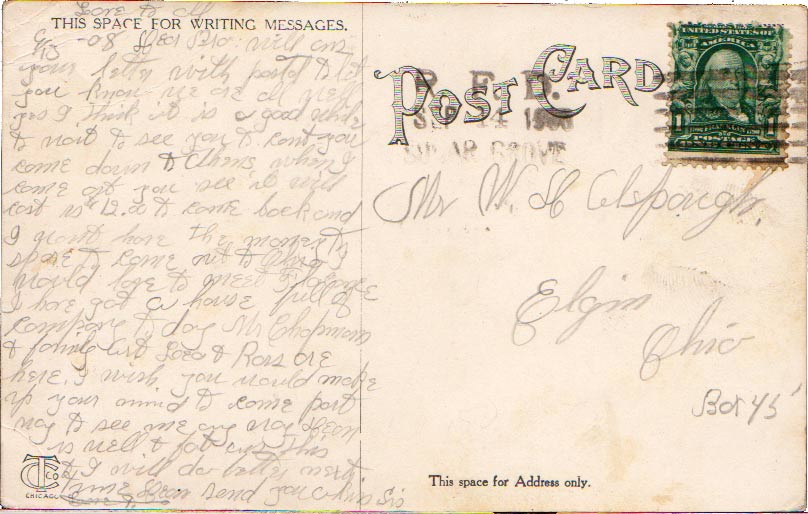 Love to all
THIS SPACE FOR WRITING MESSAGES.
-08 Dear Bro: will ans
your letter with postal to let
you know we are all well
yes I think it is a good while
to wait to see you to cant you
come down to Athens, when I
come out you see it will
cost us 12.00 to come back and
I wont have the money to
spare to come out to Ohio I
would love to meet Florence
I have got a house full of
company to day Mr Chapman
& family &
are
here. I wish you would make
up your mind to come part
way to see me any way
is well & fat
I will do better next
time send you a
Sis
TC Co.
CHICAGO
POST CARD
R. F. D.
SEP 11 1908
SUGAR GROVE
UNITED STATES OF
AMERICA
1
POSTAGE
ONE CENT
Mr W. H Alspaugh.
Elgin
Ohio
Box 45
This space for Address only.